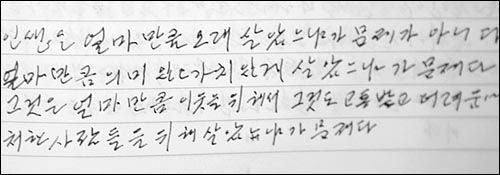 인생은 얼마만큼 오래 살았느냐가 문제가 아니다
얼마만큼의미있고가치있게 살았느냐가 문제다
그것은 얼마만큼 이웃을위해서 그것도 고통받고 어려운
처한사람들을위해살았느냐가 문제다